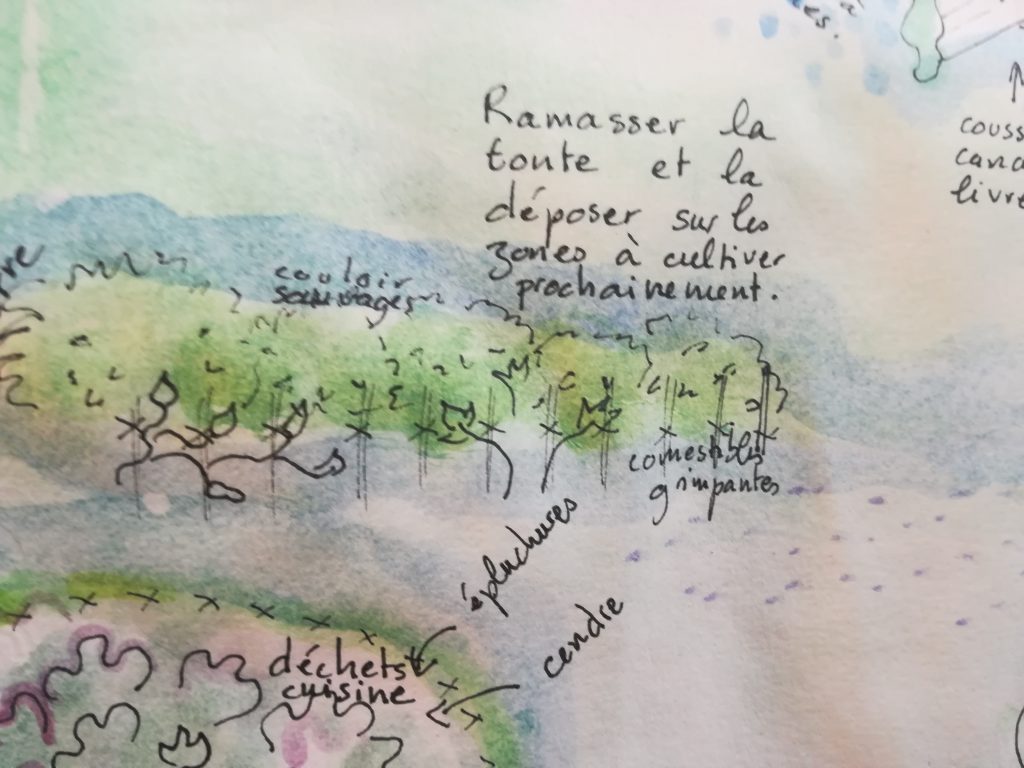 Ramasser la
tonte et la
déposer sur les
zones à cultiver
prochainement.
couloir
sauvages
comestibles
grimpantes
épluchures
cendre
déchets
cuisine